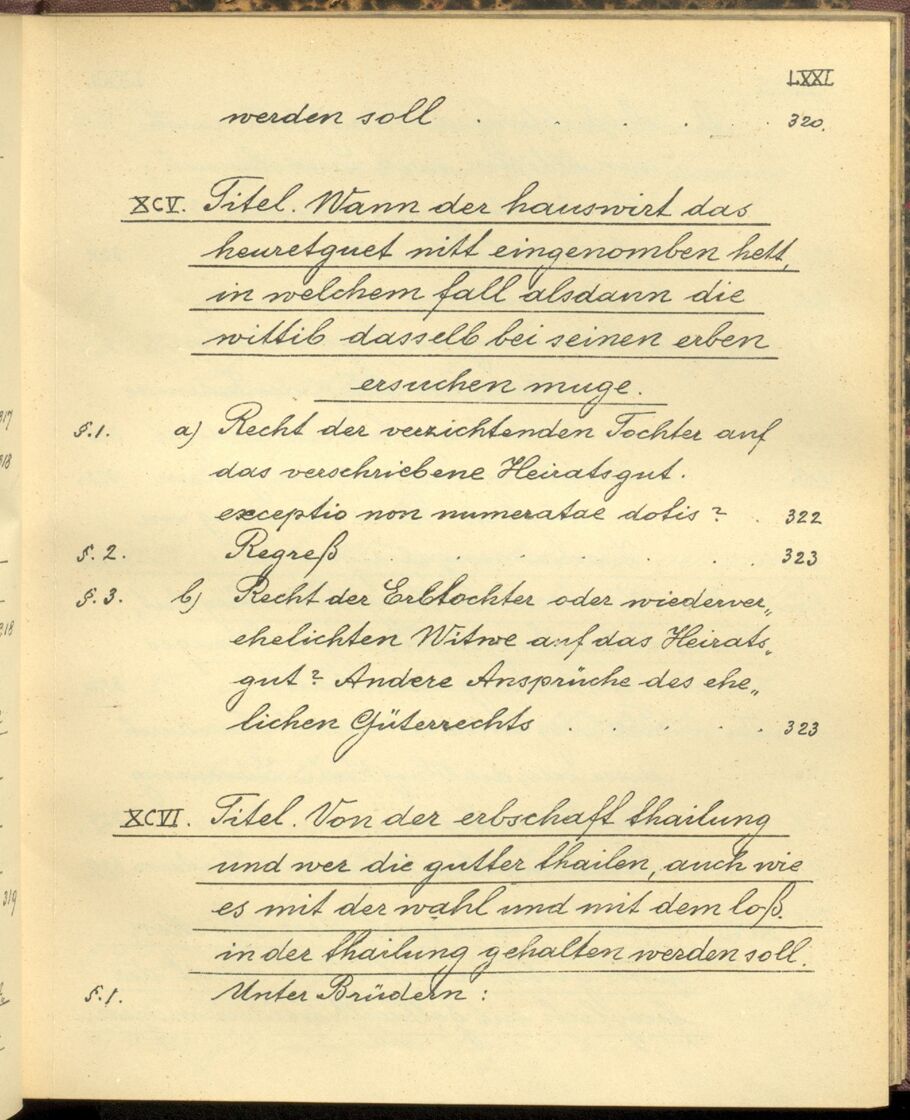 LXXI
werden soll . . . . . . 320.
XCV. Titel. Wann der hauswirt das
heuretguet nitt eingenomben hett,
in welchem fall alsdann die
wittib dasselb bei seinen erben
ersuchen muge.
§.1. a) Recht der verzichtenden Tochter auf
das verschriebene Heiratsgut.
exceptio non numeratae dotis? . 322
§.2. Regreß . . . . 323
§.3. b) Recht der Erbtochter oder wiederver„
ehelichten Witwe auf das Heirats„
gut? Andere Ansprüche des ehe„
lichen Güterrechts . . . . . 323
XCVI. Titel. Von der erbschaft thailung
und wer die gutter thailen, auch wie
es mit der wahl und mit dem loß.
in der thailung gehalten werden soll.
§.1. Unter Brüdern:
317
318
318
319